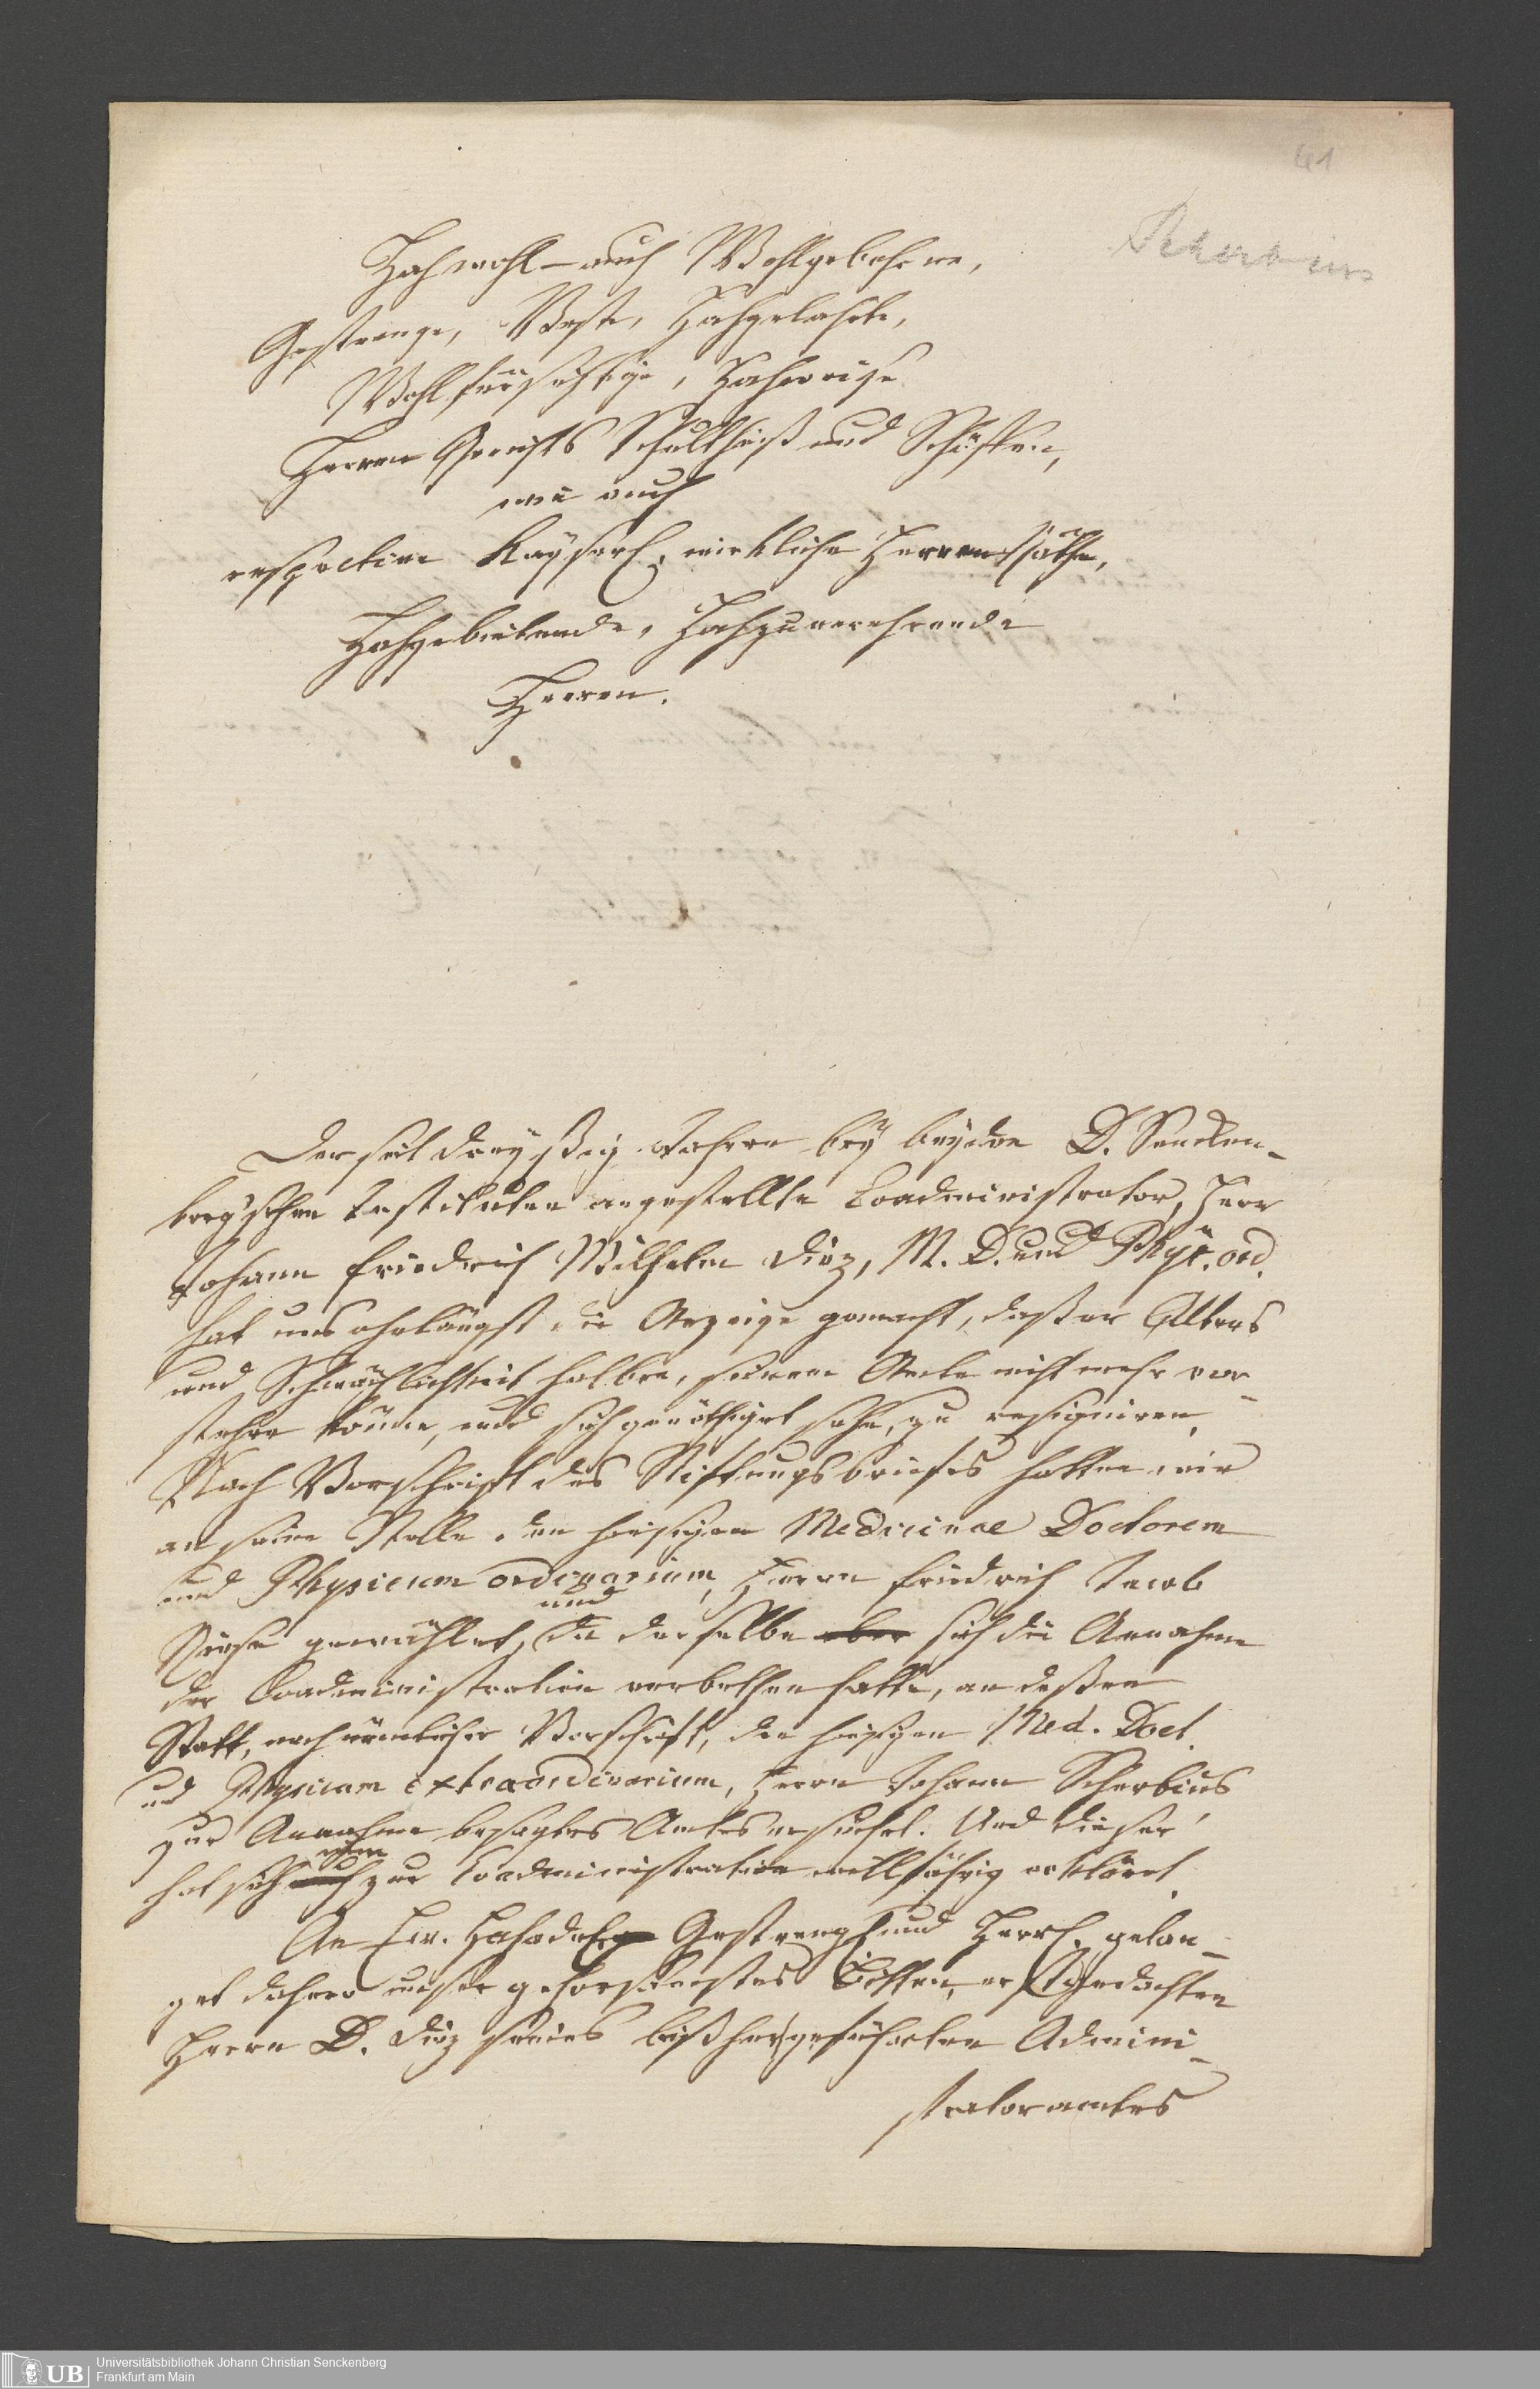 41
Scherbius
Hochwohl- auch Wohlgebohrne,
Gestrenge, Veste, Hochgelahrte,
Wohlfürsichtige, Hochweise
Herren Gerichts Schultheiß und Schöffen,
wie auch
respective Kayserl. wirkliche Herren Räthe,
Hochgebietende, Hochzuverehrende
Herren.
Der seit dreyßig Jahren bey beyden D. Sencken-
berg'schen Instituten angestellte Coadministrator, Herr
Johann Friedrich Wilhelm Diez, M. D. und Phys. ord.
hat uns ohnlängst die Anzeige gemacht, daß er Alters
und Schwächlichkeit halber, seinem Amte nicht mehr vor-
stehen könne, und sich genöthiget sehe, zu resigniren.
Nach Vorschrift des Stiftungsbriefes hatten wir
an seine Stelle den hiesigen Medicinae Doctorem
und Physicum ordinarium, Herrn Friedrich Jacob
und
gewählet, da derselbe aber sich die Annahme
der Coadministration verbethen hatte, an deßen
Statt, nach nämlicher Vorschrift, den hiesigen Med. Doct.
und Physicum extraordinarium, Herrn Johann Scherbius
zur Annahme besagtes Amtes ersucht. Und dieser
nun
hat sich auch zur Coadministration willfährig erklärt.
An Ew. Hochadel Gestrengl. und Herrl. gelan-
get dahero unser gehorsamstes Bitten, erstgedachten
Herrn D. Diez seines bißher geführten Admini-
stratoramtes
UB
Universitätsbibliothek Johann Christian Senckenberg
Frankfurt am Main